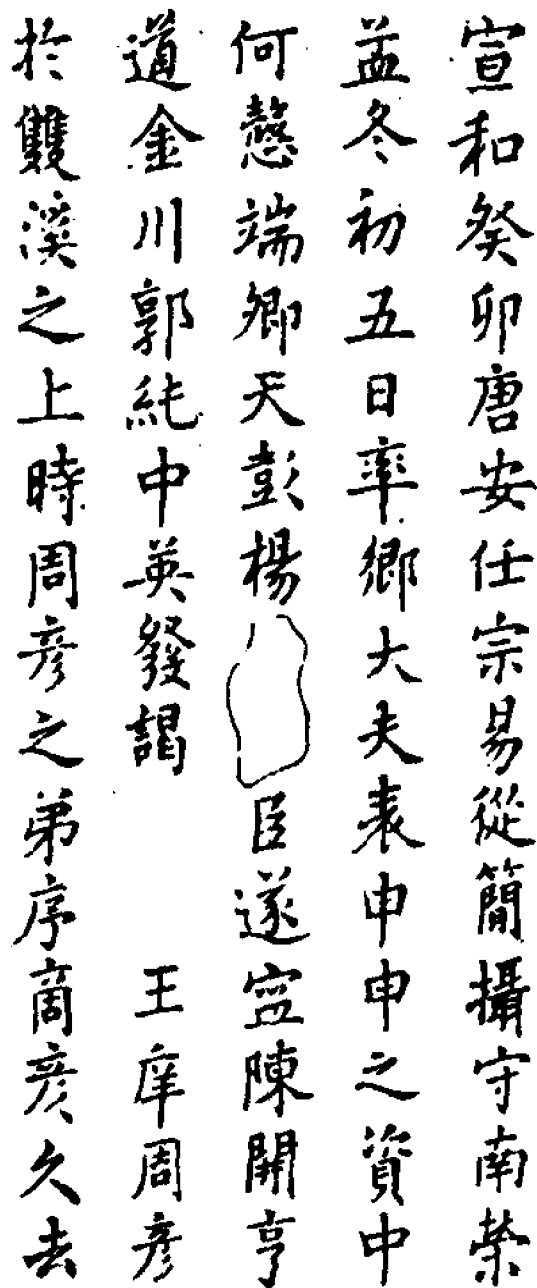 宣和癸卯唐安任宗易從簡攝守南榮
孟冬初五日率鄉大夫袁申申之資中
何慤端卿天彭楊臣遂寧陳開亨
道金川郭純中英發謁王庠周彥
於雙溪之上時周彥之弟序商彥久去